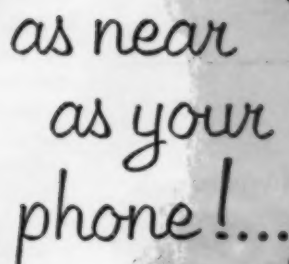 as near
as your
phone!...